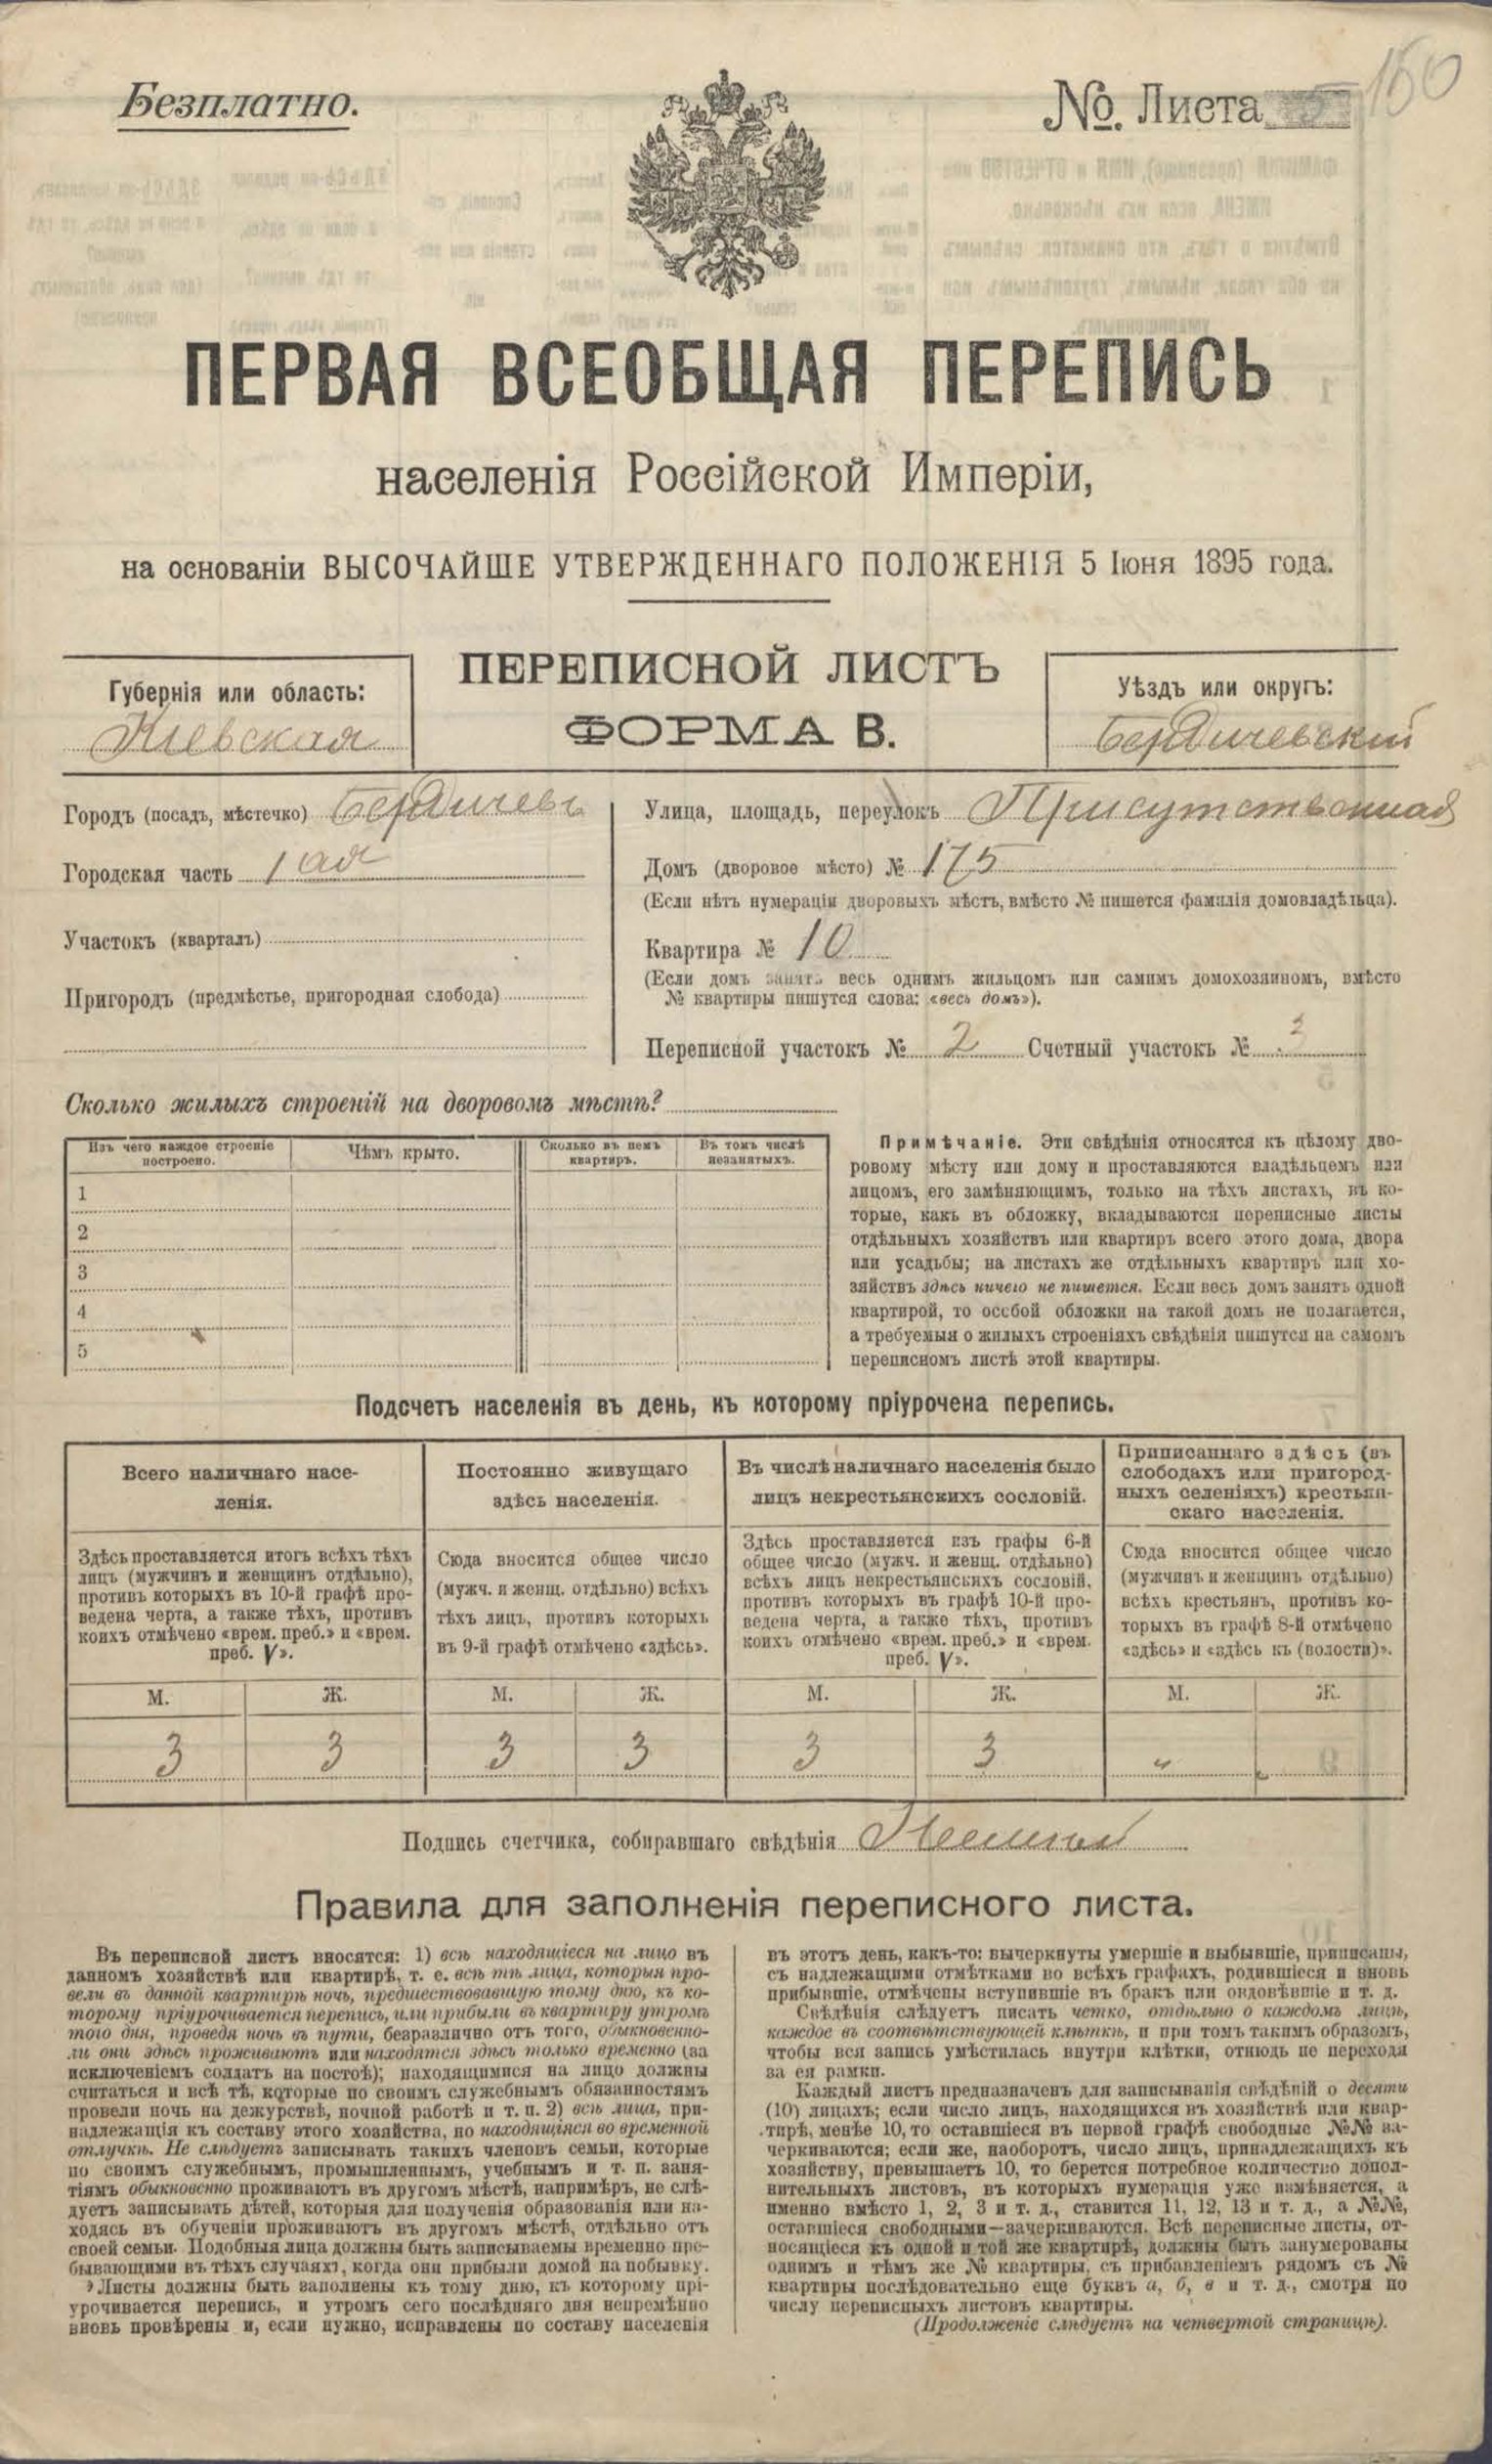 Безплатно.
№. Листа
150
ПЕРВАЯ ВСЕОБЩАЯ ПЕРЕПИСЬ
населенія Россійской Имперіи,
на основаніи ВЫСОЧАЙШЕ УТВЕРЖДЕННАГО ПОЛОЖЕНІЯ 5 Іюня 1895 года.
ПЕРЕПИСНОЙ ЛИСТЪ
ФОРМА В.
Губернія или область:
Кіевская
Уѣздъ или округъ:
Бердичевский
Городъ (посадъ, мѣстечко) Бердичевъ
Городская часть 1 ая
Участокъ (кварталъ)
Пригородъ (предмѣстье, пригородная слобода)
Улица, площадь, переулокъ Присутственная
Домъ (дворовое мѣсто) № 175
(Если нѣтъ нумераціи дворовыхъ мѣстъ, вмѣсто № пишется фамилія домовладѣльца).
Квартира № 10
(Если домъ занятъ весь однимъ жильцомъ или самимъ домохозяиномъ, вмѣсто
№ квартиры пишутся слова: «весь домъ»).
Переписной участокъ № 2 Счетный участокъ № 3
Сколько жилыхъ строеній на дворовомъ мѣстѣ?
Изъ чего каждое строеніе
построено.
Чѣмъ крыто.
Сколько въ немъ
квартиръ.
Въ томъ числѣ
незанятыхъ.
1
2
3
4
5
Примѣчаніе. Эти свѣдѣнія относятся къ цѣлому дво-
ровому мѣсту или дому и проставляются владѣльцемъ или
лицомъ, его замѣняющимъ, только на тѣхъ листахъ, въ ко-
торые, какъ въ обложку, вкладываются переписные листы
отдѣльныхъ хозяйствъ или квартиръ всего этого дома, двора
или усадьбы; на листахъ же отдѣльныхъ квартиръ или хо-
зяйствъ здѣсь ничего не пишется. Если весь домъ занятъ одной
квартирой, то особой обложки на такой домъ не полагается,
а требуемыя о жилыхъ строеніяхъ свѣдѣнія пишутся на самомъ
переписномъ листѣ этой квартиры.
Подсчетъ населенія въ день, къ которому пріурочена перепись.
Всего наличнаго насе-
ленія.
Здѣсь проставляется итогъ всѣхъ тѣхъ
лицъ (мужчинъ и женщинъ отдѣльно),
противъ которыхъ въ 10-й графѣ про-
ведена черта, а также тѣхъ, противъ
коихъ отмѣчено «врем. преб.» и «врем.
преб. V».
Постоянно живущаго
здѣсь населенія.
Сюда вносится общее число
(мужч. и женщ. отдѣльно) всѣхъ
тѣхъ лицъ, противъ которыхъ
въ 9-й графѣ отмѣчено «здѣсь».
Въ числѣ наличнаго населенія было
лицъ некрестьянскихъ сословій.
Здѣсь проставляется изъ графы 6-й
общее число (мужч. и женщ. отдѣльно)
всѣхъ лицъ некрестьянскихъ сословій,
противъ которыхъ въ графѣ 10-й про-
ведена черта, а также тѣхъ, противъ
коихъ отмѣчено «врем. преб.» и «врем.
преб. V».
Приписаннаго здѣсь (въ
слободахъ или пригород-
ныхъ селеніяхъ) крестьян-
скаго населенія.
Сюда вносится общее число
(мужчинъ и женщинъ отдѣльно)
всѣхъ крестьянъ, противъ ко-
торыхъ въ графѣ 8-й отмѣчено
«здѣсь» и «здѣсь къ (волости)».
М. Ж. М. Ж. М. Ж. М. Ж.
3 3 3 3 3 3 „ „
Подпись счетчика, собиравшаго свѣдѣнія
Правила для заполненія переписного листа.
Въ переписной листъ вносятся: 1) всѣ находящіеся на лицо въ
данномъ хозяйствѣ или квартирѣ, т. е. всѣ тѣ лица, которыя про-
вели въ данной квартирѣ ночь, предшествовавшую тому дню, къ ко-
торому пріурочивается перепись, или прибыли въ квартиру утромъ
того дня, проведя ночь въ пути, безразлично отъ того, обыкновенно-
ли они здѣсь проживаютъ или находятся здѣсь только временно (за
исключеніемъ солдатъ на постоѣ); находящимися на лицо должны
считаться и всѣ тѣ, которые по своимъ служебнымъ обязанностямъ
провели ночь на дежурствѣ, ночной работѣ и т. п. 2) всѣ лица, при-
надлежащія къ составу этого хозяйства, но находящіяся во временной
отлучкѣ. Не слѣдуетъ записывать такихъ членовъ семьи, которые
по своимъ служебнымъ, промышленнымъ, учебнымъ и т. п. заня-
тіямъ обыкновенно проживаютъ въ другомъ мѣстѣ, напримѣръ, не слѣ-
дуетъ записывать дѣтей, которыя для полученія образованія или на-
ходясь въ обученіи проживаютъ въ другомъ мѣстѣ, отдѣльно отъ
своей семьи. Подобныя лица должны быть записываемы временно пре-
бывающими въ тѣхъ случаяхъ, когда они прибыли домой на побывку.
Листы должны быть заполнены къ тому дню, къ которому прі-
урочивается перепись, и утромъ сего послѣдняго дня непремѣнно
вновь провѣрены и, если нужно, исправлены по составу населенія
въ этотъ день, какъ-то: вычеркнуты умершіе и выбывшіе, приписаны,
съ надлежащими отмѣтками во всѣхъ графахъ, родившіеся и вновь
прибывшіе, отмѣчены вступившіе въ бракъ или овдовѣвшіе и т. д.
Свѣдѣнія слѣдуетъ писать четко, отдѣльно о каждомъ лицѣ,
каждое въ соотвѣтствующей клѣткѣ, и при томъ такимъ образомъ,
чтобы вся запись умѣстилась внутри клѣтки, отнюдь не переходя
за ея рамки.
Каждый листъ предназначенъ для записыванія свѣдѣній о десяти
(10) лицахъ; если число лицъ, находящихся въ хозяйствѣ или квар-
тирѣ, менѣе 10, то оставшіеся въ первой графѣ свободные №№ за-
черкиваются; если же, наоборотъ, число лицъ, принадлежащихъ къ
хозяйству, превышаетъ 10, то берется потребное количество допол-
нительныхъ листовъ, въ которыхъ нумерація уже измѣняется, а
именно вмѣсто 1, 2, 3 и т. д., ставится 11, 12, 13 и т. д., а №№,
оставшіеся свободными—зачеркиваются. Всѣ переписные листы, от-
носящіеся къ одной и той же квартирѣ, должны быть занумерованы
однимъ и тѣмъ же № квартиры, съ прибавленіемъ рядомъ съ №
квартиры послѣдовательно еще буквъ а, б, в и т. д., смотря по
числу переписныхъ листовъ квартиры.
(Продолженіе слѣдуетъ на четвертой страницѣ).